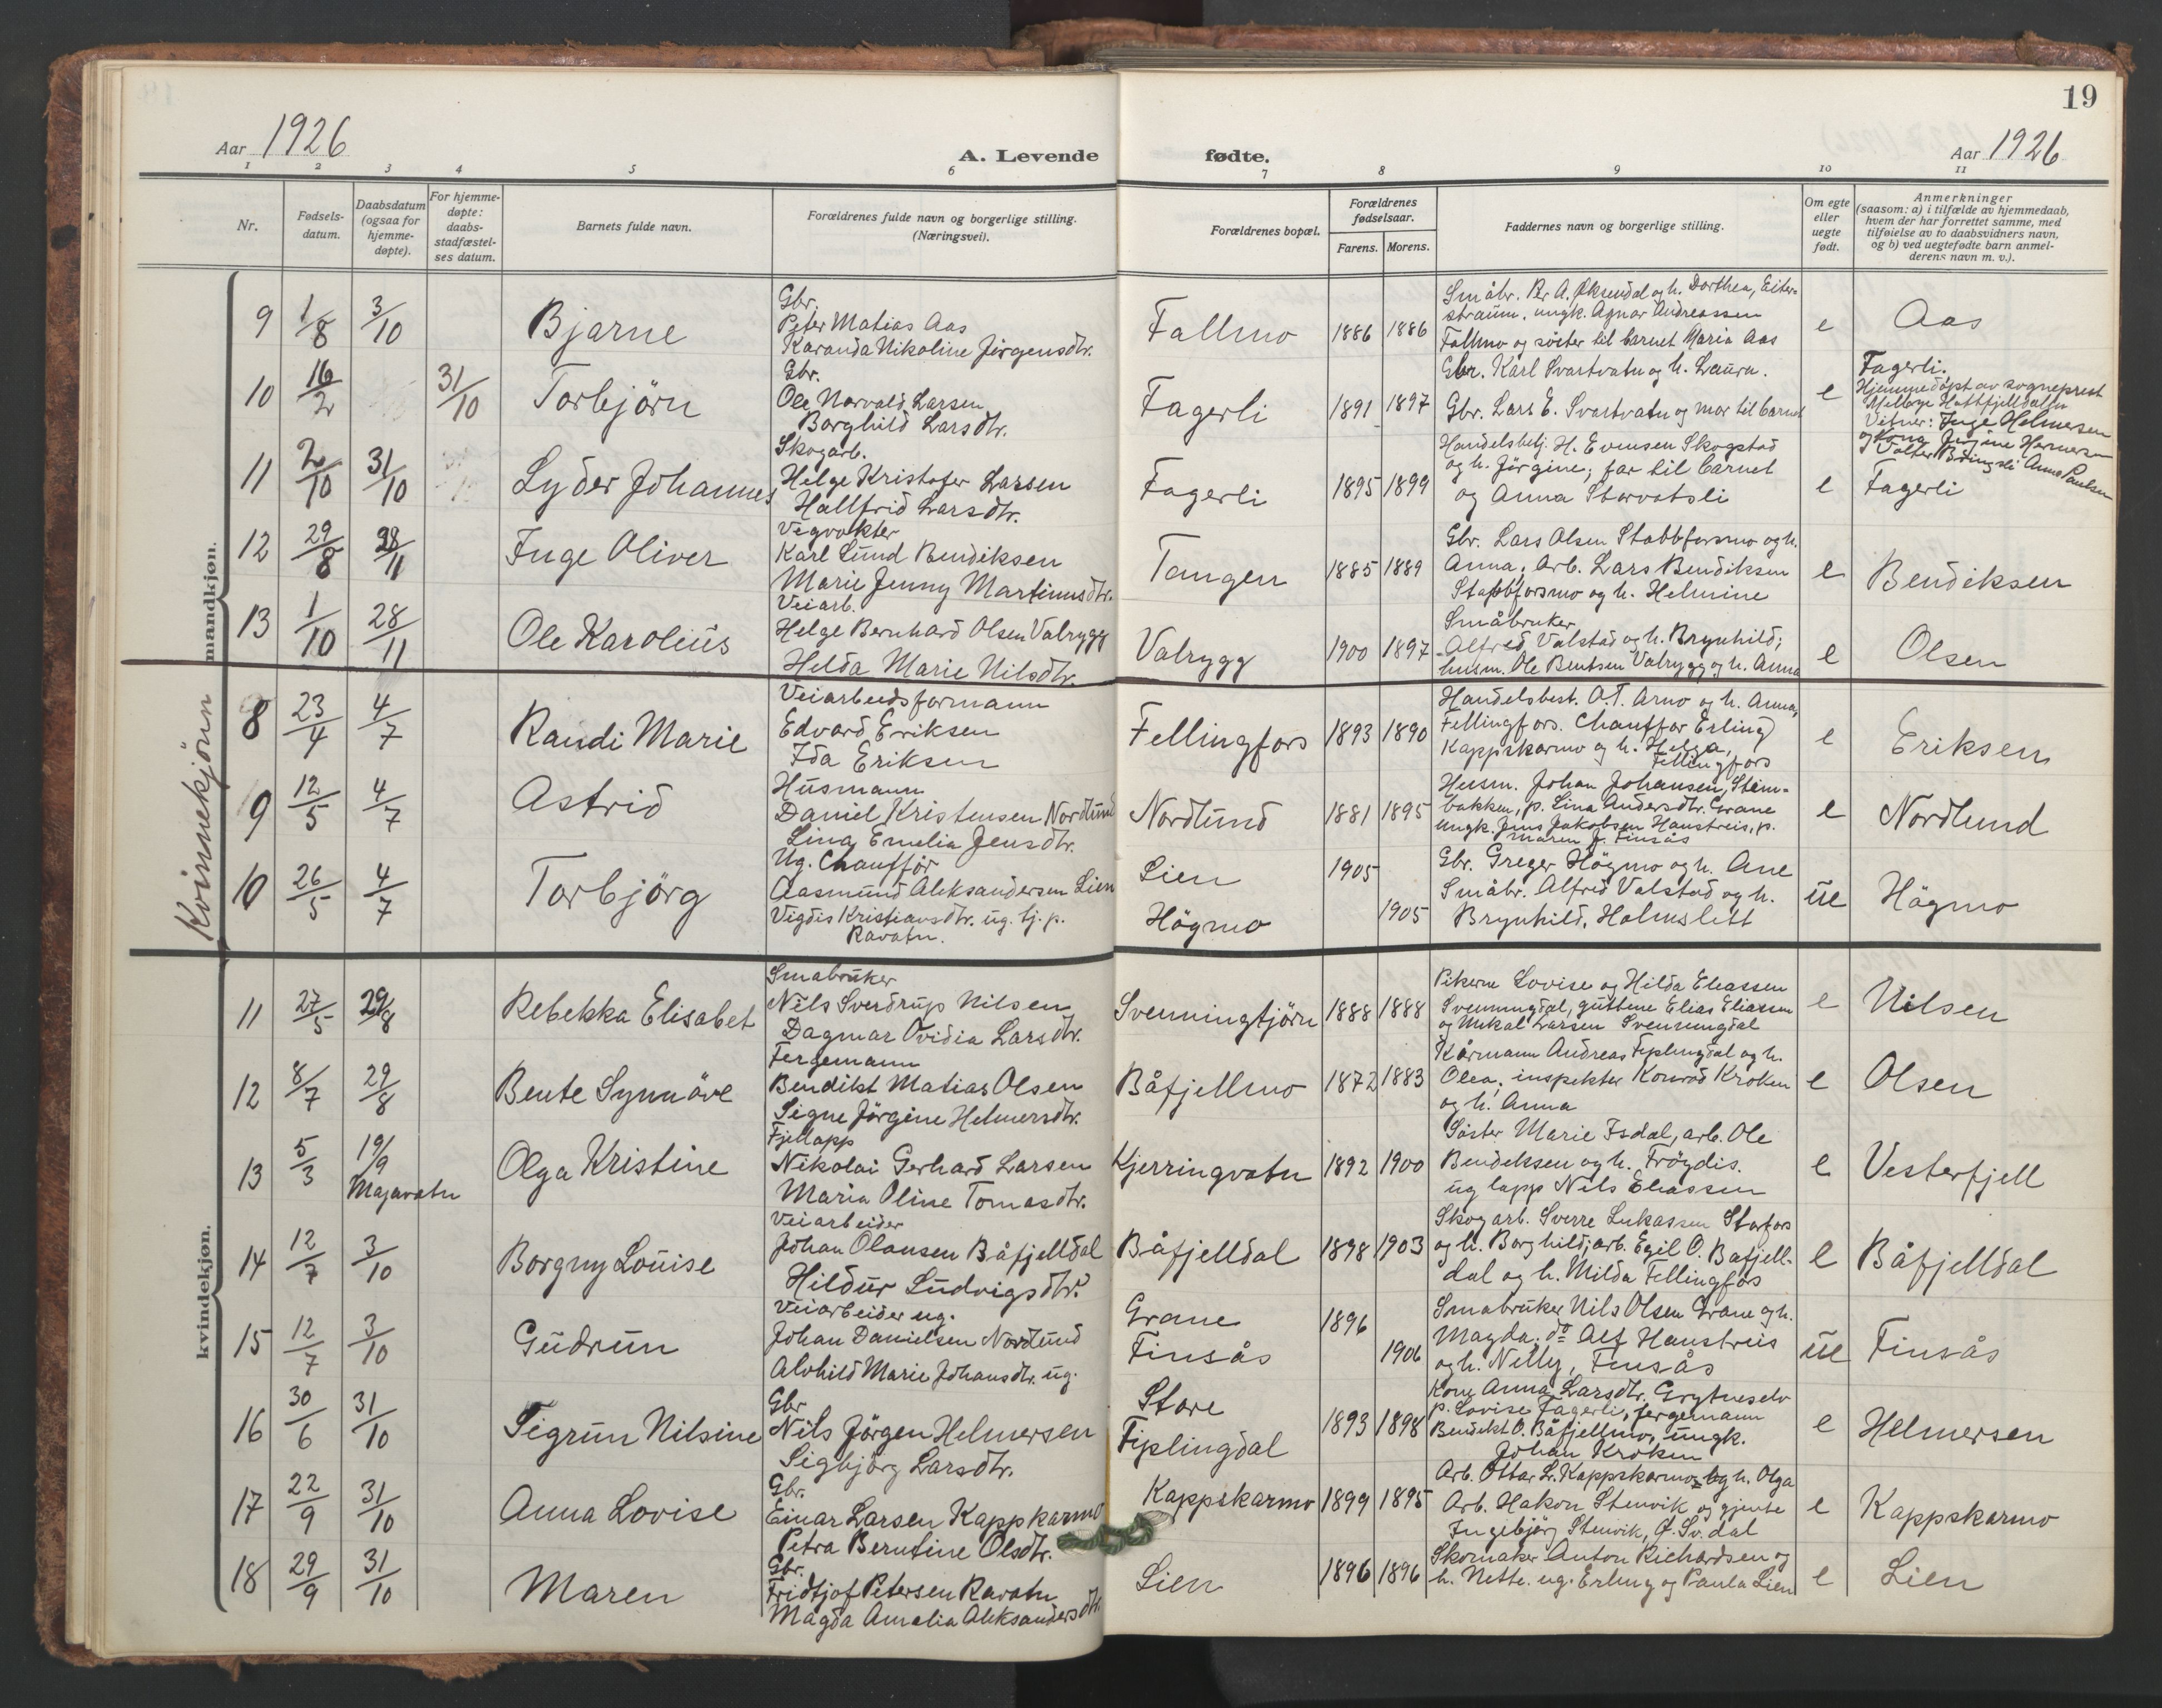 19
Aar 1926
A. Levende fødte.
Aar 1926
1 2 3 4 5 6 7 8 9 10 11
Nr.
Fødsels-
datum.
Daabsdatum
(ogsaa for
hjemme-
døpte).
For hjemme-
døpte:
daabs-
stadfæstel-
ses datum.
Barnets fulde navn.
Forældrenes fulde navn og borgerlige stilling.
(Næringsvei).
Forældrenes bopæl.
Forældrenes
fødselsaar.
Farens. Morens.
Faddernes navn og borgerlige stilling.
Om egte
eller
uegte
født.
Anmerkninger
(saasom: a) i tilfælde av hjemmedaab,
hvem der har forrettet samme, med
tilføielse av to daabsvidners navn,
og b) ved uegtefødte barn anmel-
derens navn m. v.).
mandkjøn.
9 1/8 3/10 Bjarne
Gbr.
Peter Matias Aas
Karanda Nikoline Jörgensdtr.
Fallmo 1886 1886
Småbr. Per A. Øksendal og h. Dorthea, Eiter-
straum, ungk. Agnar Andreassen
Fallmo og söster til barnet Maria Aas
e Aas
10 16/2 31/10 Torbjörn
Gbr.
Ole Norvald Larsen
Borghild Larsdtr.
Fagerli 1891 1897
Gbr. Karl Svartvatn og h. Laura.
Gbr. Lars E. Svartvatn og mor til barnet
e Fagerli.
Hjemmedöpt av sogneprest
Hattfjelldalen
Vitner: Inge Helmersen
og kona Jörgine
Anna Paulsen
11 2/10 31/10 Lyder Johannes
Skogarb.
Helge Kristofer Larsen
Hallfrid Larsdtr.
Fagerli 1895 1899
Handelsbetj. H. Evensen Skogstad
og h. Jörgine; far til barnet
og Anna Storvatsli
e Fagerli
12 29/8 28/11 Inge Oliver
Vegvokter
Karl Lund Bendiksen
Marie Jenny Martinusdtr.
Tangen 1885 1889
Gbr. Lars Olsen Stabbforsmo og h.
Anna; Arb. Lars Bendiksen
Stabbforsmo og h. Helmine
e Bendiksen
13 1/10 28/11 Ole Karolius
Veiarb.
Helge Bernhard Olsen Valrygg
Helda Marie Nilsdtr.
Valrygg 1900 1897
Småbruker
Alfred Valstad og h. Brynhild;
husm. Ole Bentsen Valrygg og h. Anna
e Olsen
Kvinnekjönn
8 23/4 4/7 Randi Marie
Veiarbeidsformann
Edvard Eriksen
Ida Eriksen
Fellingfors 1893 1890
Handelsbest. O.T. Arno og h. Anna,
Fellingfors. Chauffør Erling
Kappskarmo og h. Helga,
Fellingfors
e Eriksen
9 12/5 4/7 Astrid
Husmann
Daniel Kristensen Nordlund
Lina Emelia Jensdtr.
Nordlund 1881 1895
Husm. Johan Johansen, Stem-
bakken, p. Lina Andersdtr. Grane
ungk. Jens Jakobsen Haustreis, p.
Maren J. Finsås
e Nordlund
10 26/5 4/7 Torbjörg
Ug. Chaufför
Aasmund Aleksandersen Lien
Vigdis Kristiansdtr. ug. tj. p.
Ravatn.
Lien 1905
Högmo 1905
Gbr. Greger Högmo og h. Ane
Småbr. Alfred Valstad og h.
Brynhild, Holmslett
ue Högmo
kvindekjøn.
11 27/5 29/8 Rebekka Elisabet
Småbruker
Nils Sverdrup Nilsen
Dagmar Ovidia Larsdtr.
Svenningtjörn 1888 1888
Pikerne Lovise og Hilda Eliassen
Svenningdal, guttene Elias Eliassen
og Mikal Larsen Svenningdal
e Nilsen
12 8/7 29/8 Bente Synnöve
Fergemann
Bendikt Matias Olsen
Signe Jörgine Helmersdtr.
Båfjellmo 1872 1883
Kårmann Andreas Fiplingdal og h.
Olea; inspektør Konrad Kroken
og h. Anna
e Olsen
13 5/3 19/9
Majavatn
Olga Kristine
Fjellapp
Nikolai Gerhard Larsen
Maria Oline Tomasdtr.
Kjerringvatn 1892 1900
Söster Marie Isdal, arb. Ole
Bendiksen og h. Fröydis.
ug lapp Nils Eliassen
e Vesterfjell
14 12/7 3/10 Borgny Louise
Veiarbeider
Johan Olausen Båfjelldal
Hildur Ludvigsdtr.
Båfjelldal 1898 1903
Skogarb. Sverre Lukassen Storfors
og h. Borghild; arb. Egil O. Båfjell-
dal og h. Milda Fellingfors
e Båfjelldal
15 12/7 3/10 Gudrun
Veiarbeider ug.
Johan Danielsen Nordlund
Alvhild Marie Johansdtr. ug.
Grane 1896
Finsås 1906
Småbruker Nils Olsen Grane og h.
Magda; do Alf Haustreis
og h. Nelly, Finsås
ue Finsås
16 30/6 31/10 Sigrun Nilsine
Gbr
Nils Jörgen Helmersen
Sigbjörg Larsdtr.
Store
Fiplingdal 1893 1898
Kone Anna Larsdtr. Grytneselv
p. Lovise Fagerli, fergemann
Bendikt O. Båfjellmo, ungk.
Johan Kroken
e Helmersen
17 22/9 31/10 Anna Lovise
Gbr.
Einar Larsen Kappskarmo
Petra Berntine Olsdtr.
Kappskarmo 1899 1895
Arb. Ottar L. Kappskarmo og h. Olga
Arb. Hakon Stenvik og gjente
Ingebjörg Stenvik, G. Sv. dal
e Kappskarmo
18 29/9 31/10 Maren
Gbr.
Fridtjof Petersen Ravatn
Magda Amalia Aleksandersdtr.
Lien 1896 1896
Skomaker Anton Richardsen og
h. Nette. ug. Erling og Paula Lien
e Lien